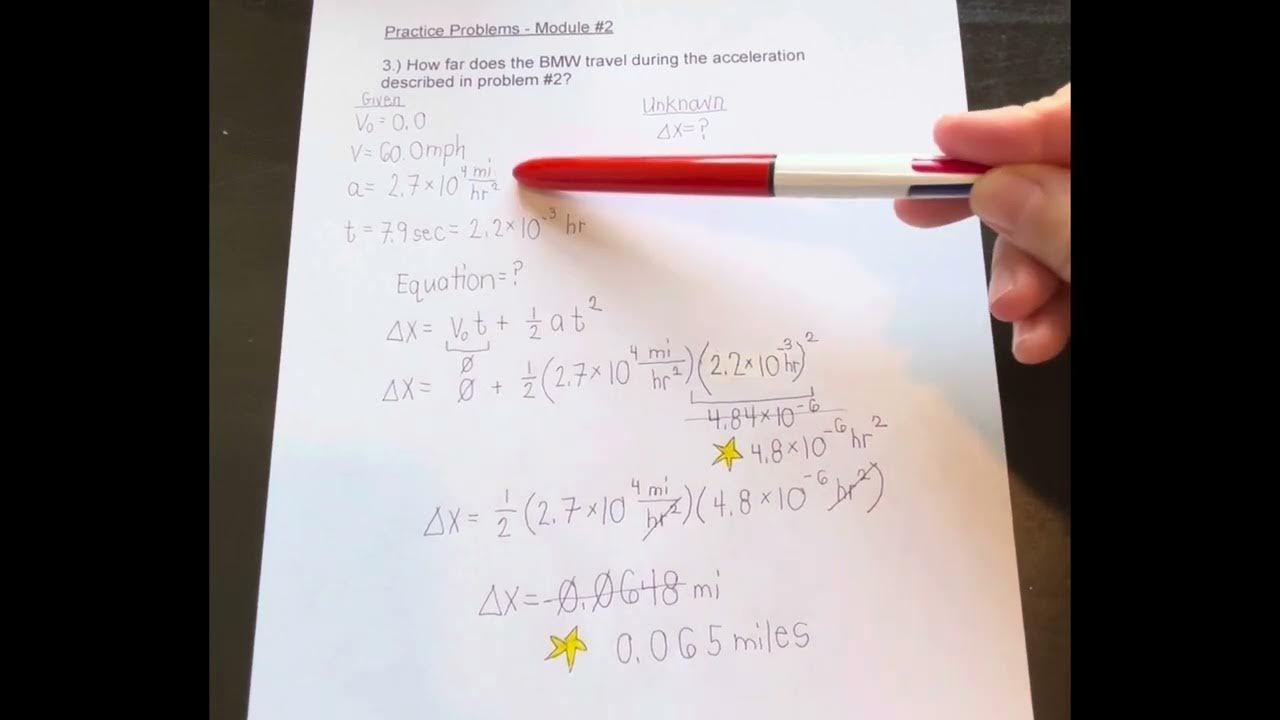 Practice Problems - Module #2
3.) How far does the BMW travel during the acceleration
described in problem #2?
Given
V₀ = 0.0
V = 60.0mph
a = 2.7 × 10⁴ mi/hr²
t = 7.9 sec = 2.2 × 10⁻³ hr
Unknown
ΔX = ?
Equation = ?
ΔX = V₀t + ½ at²
Ø
ΔX = Ø + ½ (2.7 × 10⁴ mi/hr²)(2.2 × 10⁻³ hr)²
4.84 × 10⁻⁶
4.8 × 10⁻⁶ hr²
ΔX = ½ (2.7 × 10⁴ mi/hr²)(4.8 × 10⁻⁶ hr²)
ΔX = 0.0648 mi
0.065 miles